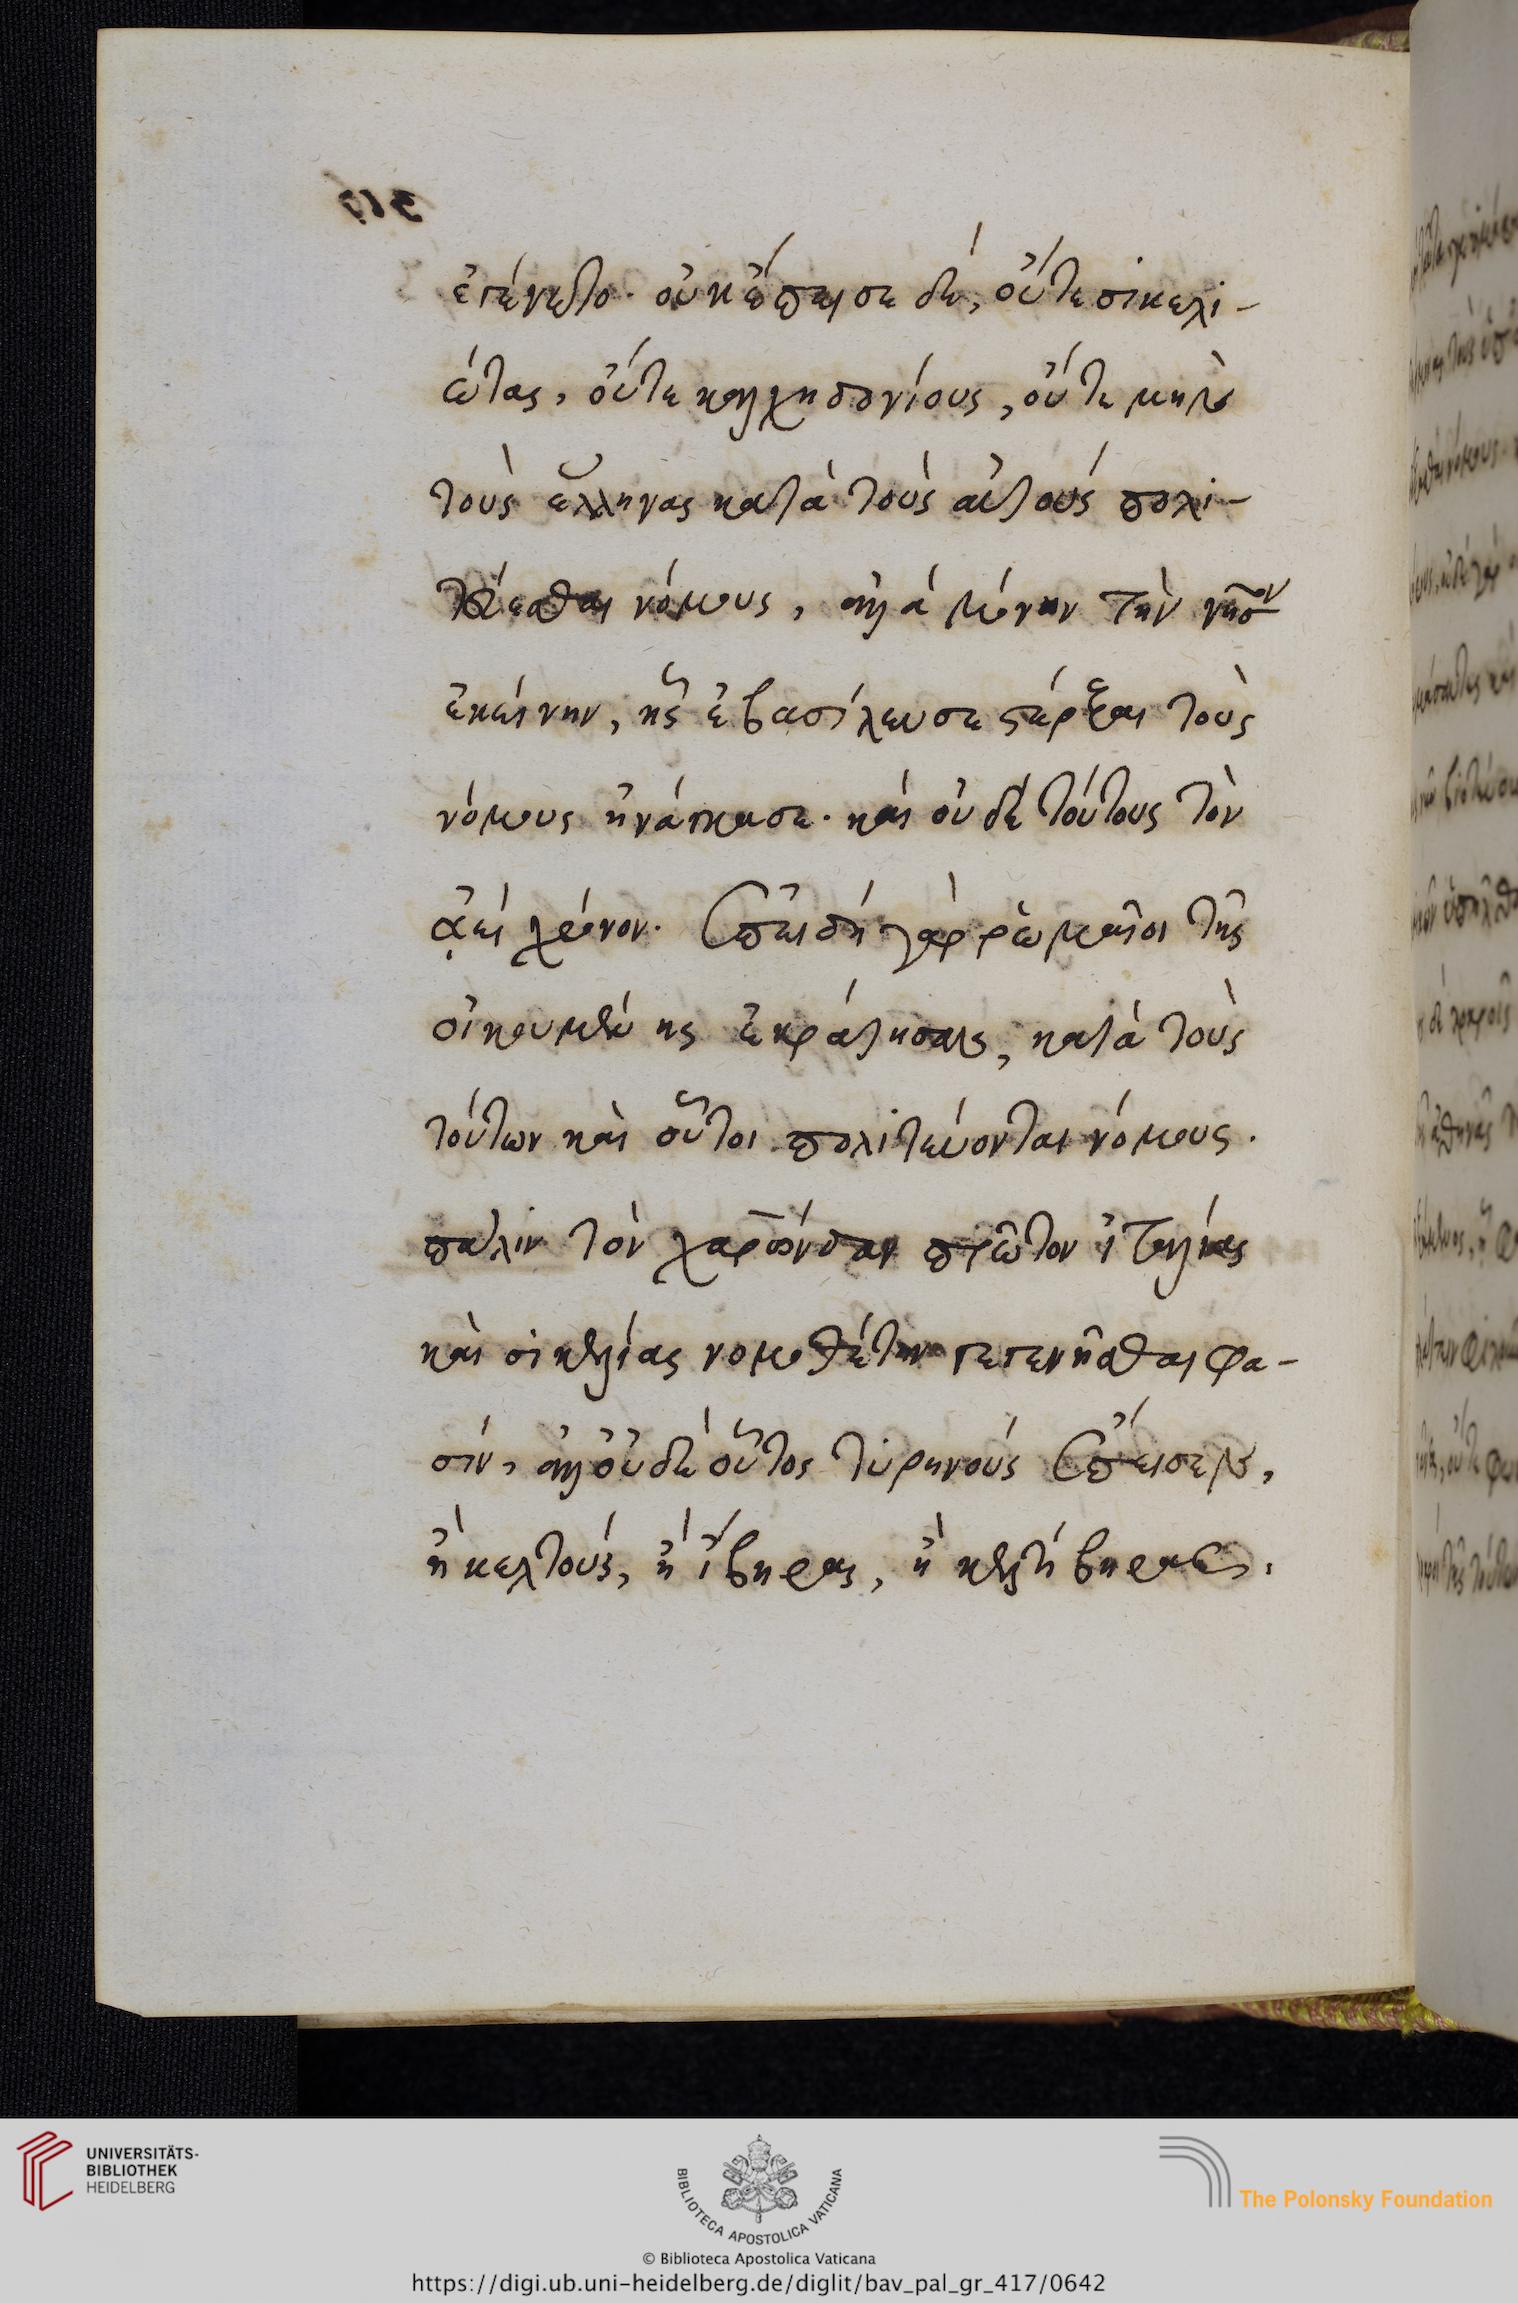 ἐγένετο. οὐκ ἔπεισε δέ, οὔτε σικελι-
ώτας, οὔτε καλχηδονίους, οὔτε μὴν
τοὺς ἕλληνας κατὰ τοὺς αὐτοὺς πολι-
τεύεσθαι νόμους, ἀλλὰ μόνην τὴν νῆσον
ἐκείνην, ἧς ἐβασίλευσε στέρξαι τοὺς
νόμους ἠνάγκασε. καὶ οὐδὲ τούτους τὸν
ἀεὶ χρόνον. Ἐπειδὴ γὰρ ῥωμαῖοι τῆς
οἰκουμένης ἐκράτησαν, κατὰ τοὺς
τούτων καὶ οὗτοι πολιτεύονται νόμους.
πάλιν τὸν χαρώνδαν πρῶτον ἰταλίας
καὶ σικελίας νομοθέτην γεγενῆσθαι φα-
σίν, ἀλλ' οὐδὲ οὗτος τυρηνοὺς ἔπεισεν,
ἢ κελτούς, ἢ ἴβηρας, ἢ κελτίβηρας.
UNIVERSITÄTS-
BIBLIOTHEK
HEIDELBERG
BIBLIOTECA APOSTOLICA VATICANA
The Polonsky Foundation
© Biblioteca Apostolica Vaticana
https://digi.ub.uni-heidelberg.de/diglit/bav_pal_gr_417/0642